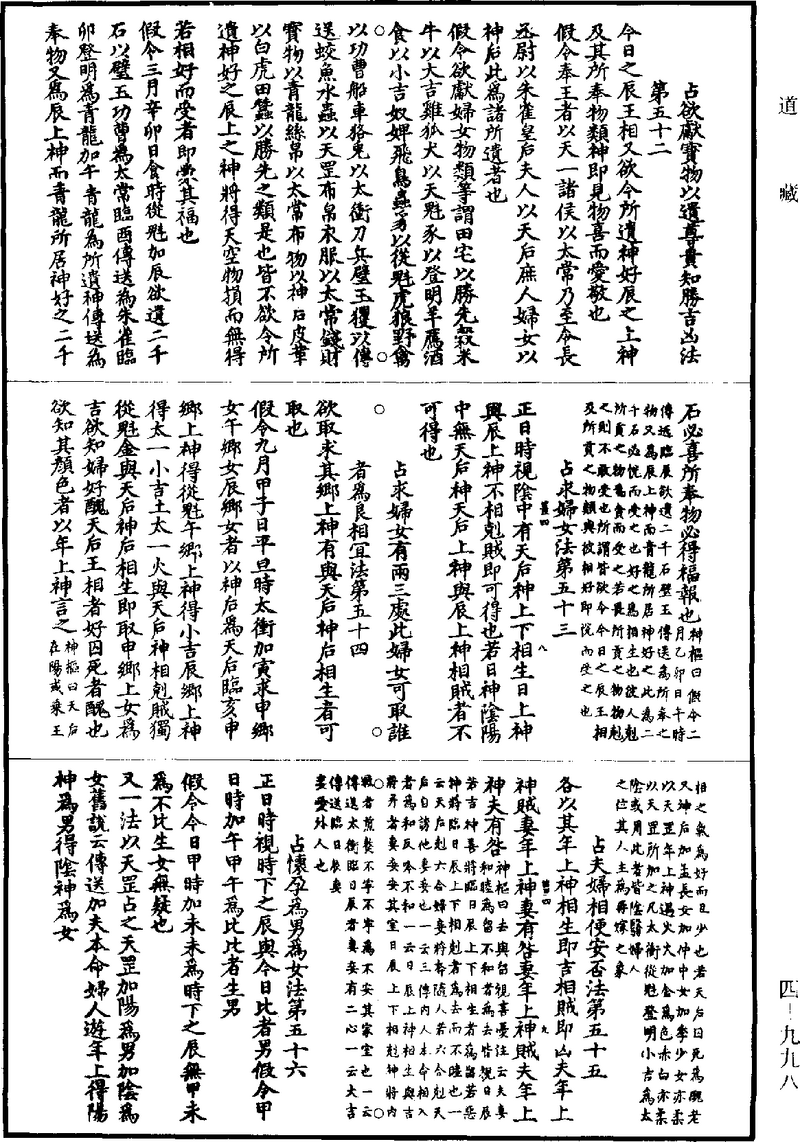 道藏
占欲獻寶物以遺尊貴知勝吉凶法
第五十二
今日之辰王相又欲令所遺神好辰之上神
及其所奉物類神即見物喜而愛敬也
假令奉王者以天一諸侯以太常乃至令長
丞尉以朱雀皇后夫人以天后庶人婦女以
神后此為諸所遺者也
假令欲獻婦女物類等謂田宅以勝先穀米
牛以大吉雞狐犬以天魁豕以登明羊鴈酒
食以小吉奴婢飛鳥蟲 以從魁虎狼野禽
以功曹船車狢兔以太衝刀兵璧玉玃以傳
送蛟魚水蟲以天罡布帛衣服以太常錢財
寶物以青龍絲帛以太常布物以神后皮革
以白虎田蠶以勝先之類是也皆不欲令所
遺神好之辰上之神將得天空物損而無得
若相好而受者即蒙其福也
假令三月辛卯日食時從魁加辰欲遺二千
石以璧玉功曹為太常臨酉傳送為朱雀臨
卯登明為青龍加午青龍為所遺神傳送為
奉物又為辰上神而青龍所居神好之二千
石必喜所奉物必得福報也神樞曰假令二
月乙卯日午時
傳送臨辰欲遺二千石璧玉傳送為所奉之
物又為辰上神而青龍所居神好之此為二
千石必悅而受之也好之為相生也彼人剋
所貢之物為貪而受之若畏所貢之物剋
之則不敢受也所謂皆欲令今日之辰王相
及所貢之物類與彼相好即悅而受之也
占求婦女法第五十三
正日時視陰中有天后神上下相生日上神
與辰上神不相剋賊即可得也若日神陰陽
中無天后神天后上神與辰上神相賊者不
可得也
占求婦女有兩三處此婦女可取誰
者為良相宜法第五十四
欲取求其鄉上神有與天后神后相生者可
取也
假令九月甲子日平旦時太衝加寅求申鄉
女午鄉女辰鄉女者以神后為天后臨亥申
鄉上神得從魁午鄉上神得小吉辰鄉上神
得太一小吉土太一火與天后神相剋賊獨
從魁金與天后神后相生即取申鄉上女為
吉欲知婦好醜天后王相者好囚死者醜也
欲知其顏色者以年上神言之神樞曰天后
在陽或乘王
相之氣為好而且少也若天后囚死為醜老
又神后加孟長女加仲中女加季少女亦柔
以天罡年上神遇火火加金為色赤白亦柔
以天罡所加之凡太衝從魁登明小吉為太
陰或用此者皆陰醫婦人
之位其人主為再嫁之象
占夫婦相便安否法第五十五
各以其年上神相生即吉相賊即凶夫年上
神賊妻年上神妻有咎妻年上神賊夫年上
神夫有咎神樞曰去與留視喜憂注云夫妻
和睦為留不和者為去皆視日辰
若吉神喜將臨日辰上下相生者為留若惡
神將臨日辰上下相剋者為去而不睦也一
云天后剋六合婦妻將奔隨人若六合剋天
后自誘他妻妾也一云三傳內人本命相入
者為和反吟不和一云日辰上神相生與吉
將并者妻妾安其室日辰上下相剋神將內
戰者煎熬不寧不牢為不安其家室也一云
傳送太衝臨日辰者妻妾有二心一云大吉
傳送臨日辰妻
妾愛外人也
占懷孕為男為女法第五十六
正日時視時下之辰與今日比者男假令甲
日時加午甲午為比比者生男
假令今日甲時加未未為時下之辰無甲未
為不比生女無疑也
又一法以天罡占之天罡加陽為男加陰為
女舊說云傳送加夫本命婦人遊年上得陽
神為男得陰神為女
四-九九八